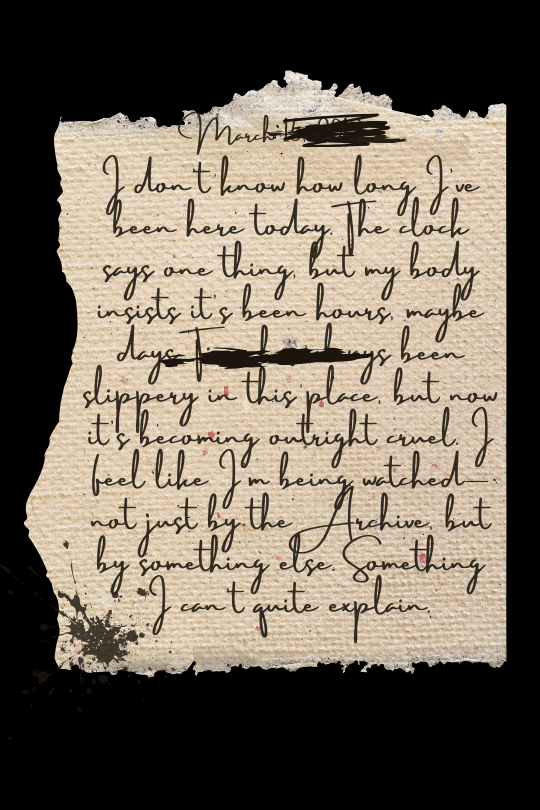 March
I don't know how long I've
been here today. The clock
says one thing, but my body
insists it's been hours, maybe
days. been
slippery in this place, but now
it's becoming outright cruel. I
feel like I'm being watched—
not just by the Archive, but
by something else. Something
I can't quite explain.